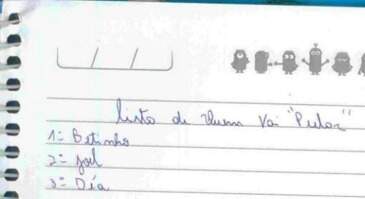 Lista de Quem Vai "Pular"
1= Betinho
2= Joel
3= Déa